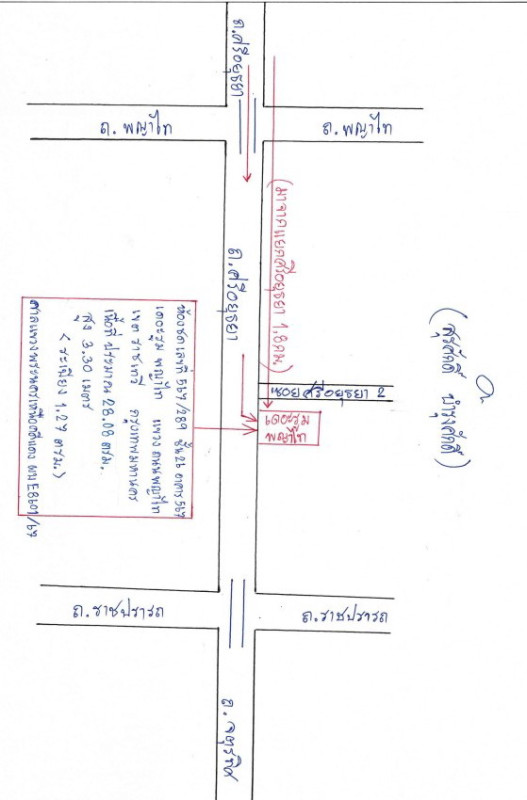 ถ.ศรีอยุธยา
ถ. พญาไท
ถ. พญาไท
(มาจากแยกศรีอยุธยา 1.8 กม)
ถ.ศรีอยุธยา
ซอยศรีอยุธยา 2
เดอะรูม
พญาไท
(สุรศักดิ์ บำรุงศักดิ์)
ห้องชุดเลขที่ 567/289 ชั้น 26 อาคาร 567
เดอะรูม พญาไท แขวง ถนนพญาไท
เขต ราชเทวี กรุงเทพมหานคร
เนื้อที่ ประมาณ 28.08 ตรม.
สูง 3.30 เมตร
( ระเบียง 1.27 ตรม. )
ศาลแขวงพระนครเหนือคดีแดง ผบE8601/67
ถ.ราชปรารถ
ถ.ราชปรารถ
ถ. จตุรทิศ